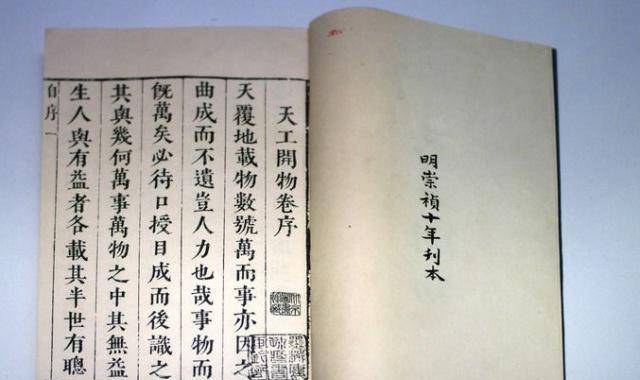 明崇禎十年刋本
天工開物卷序
天覆地載物數號萬而事亦因之
曲成而不遺豈人力也哉事物而
旣萬矣必待口授目成而後識之
其與幾何萬事萬物之中其無益
生人與有益者各載其半世有聰
自序一